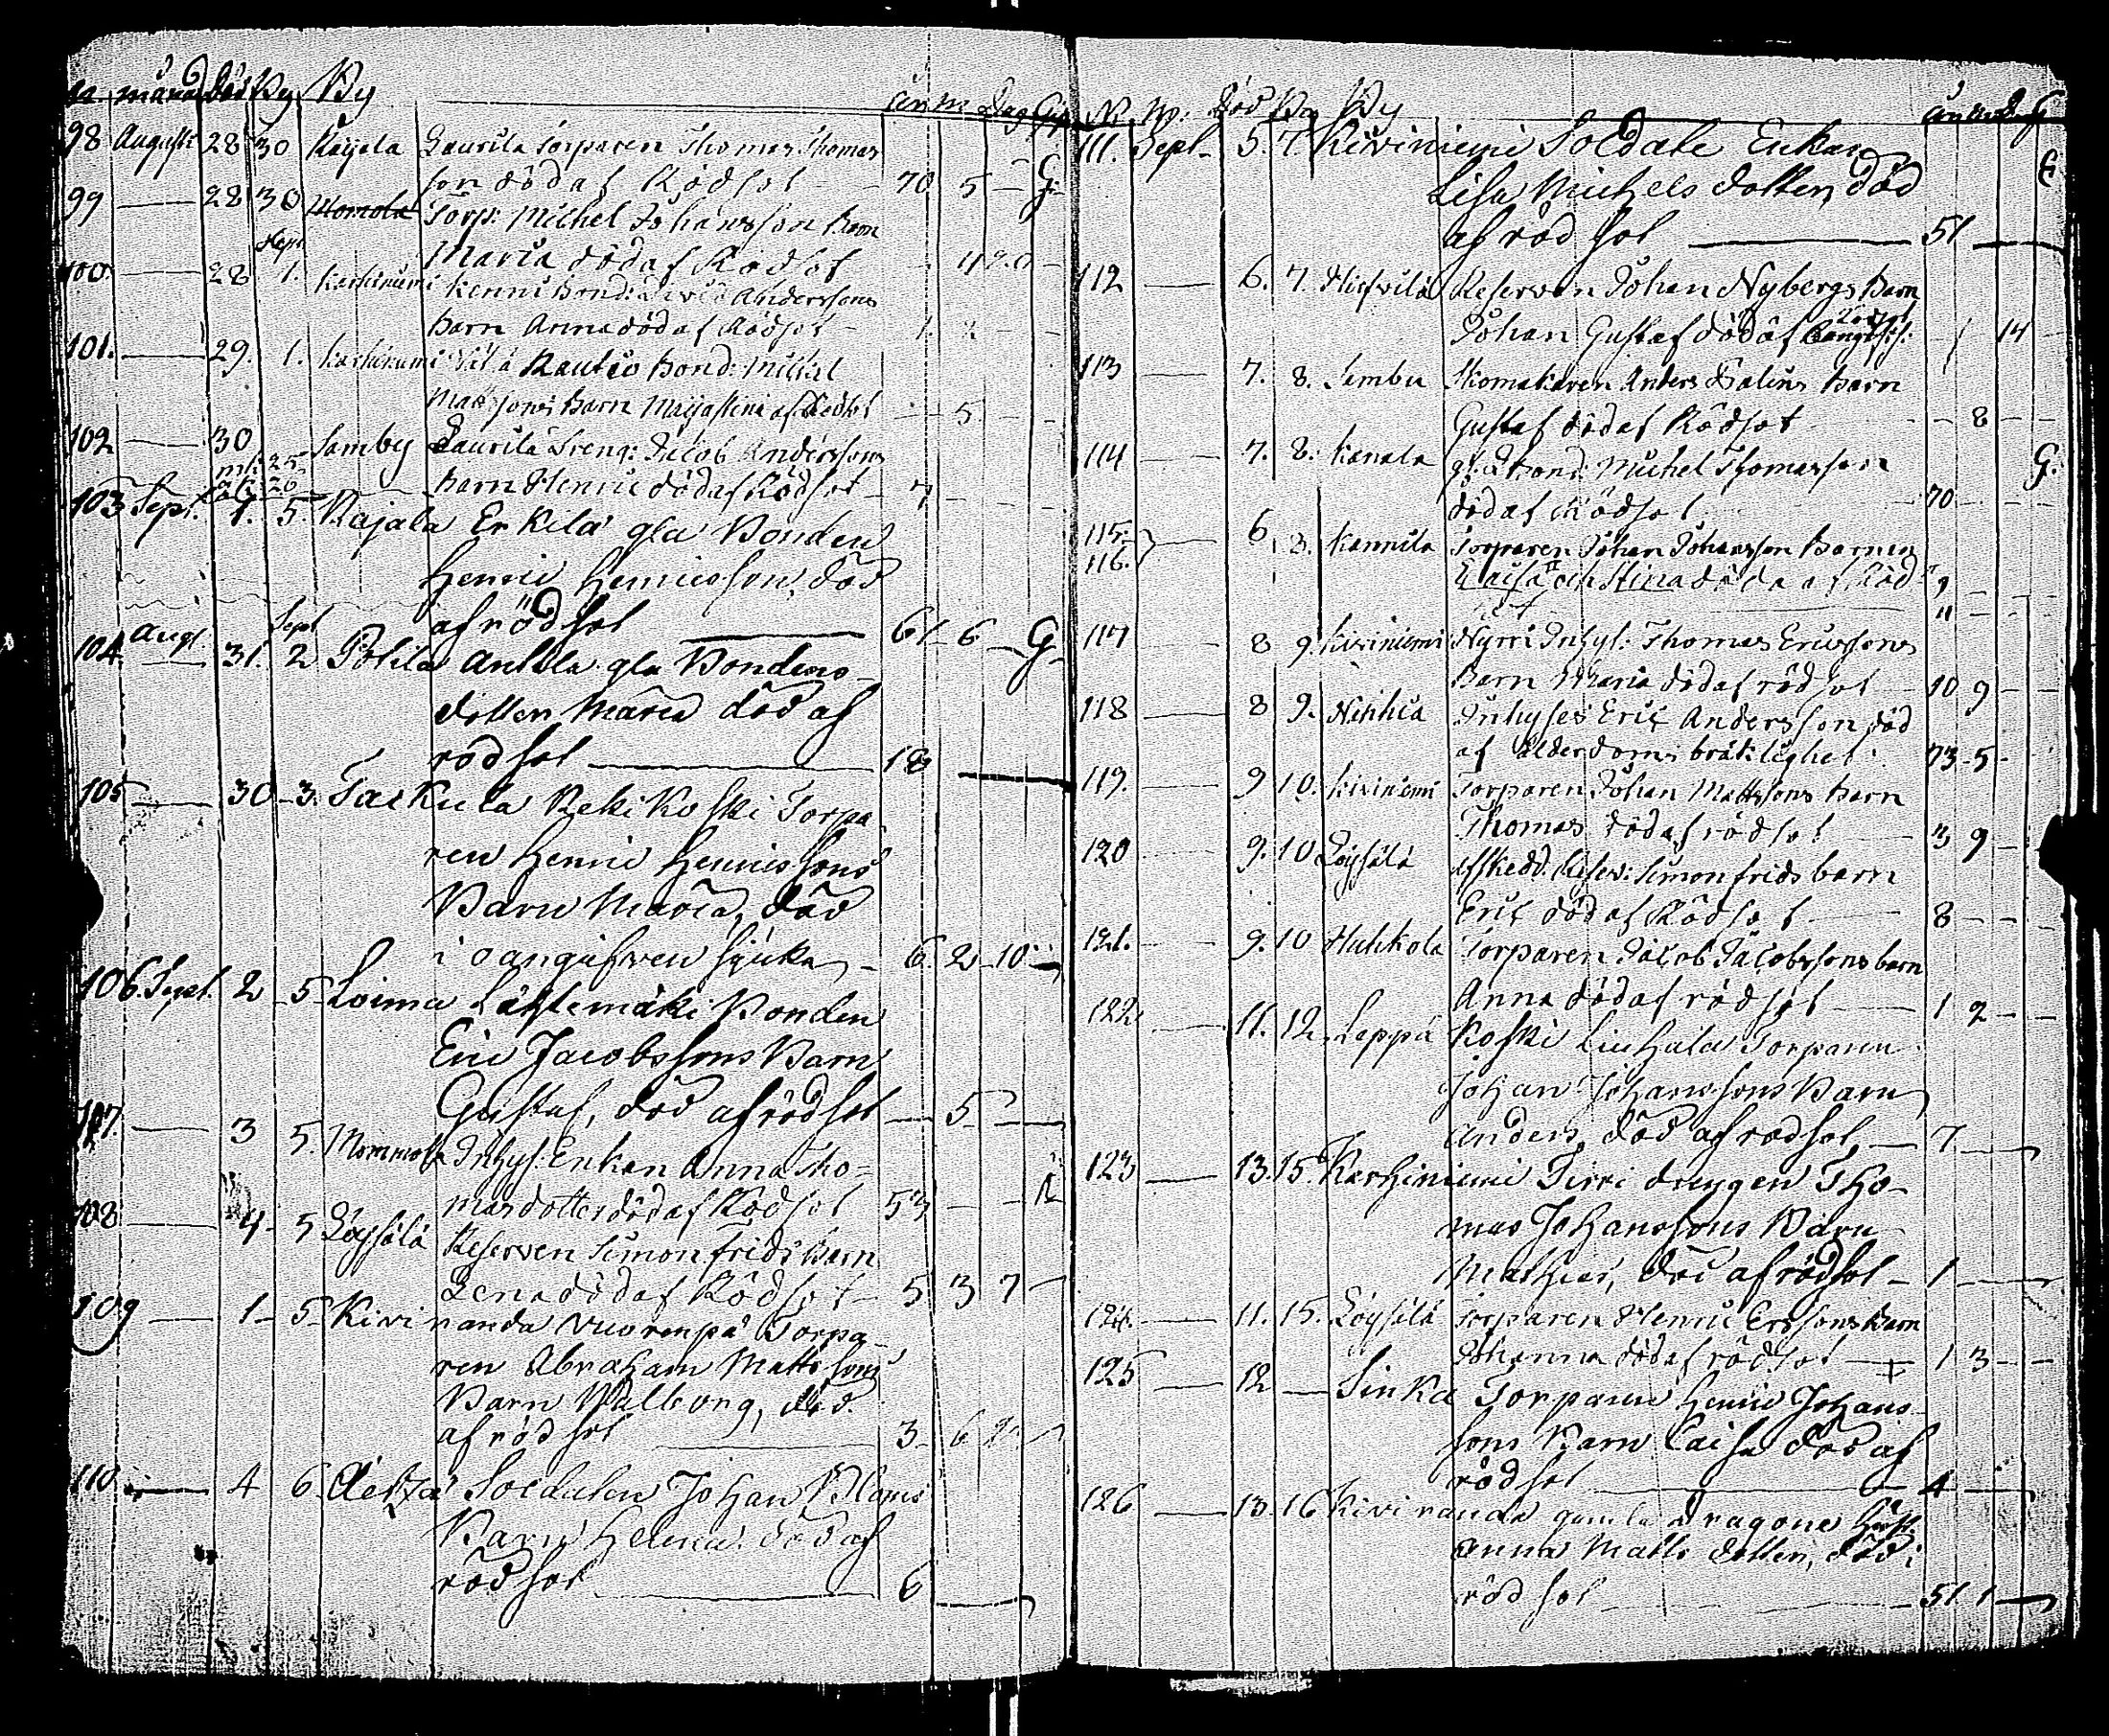 N. månad död By By år m Dag G
98 Augusti 28 30 Rajala Laurila Torparen Thomas Thomas
son död af Rödsot 70 5 — G.
99 — 28 30 Momola Torp: Michel Johansson Barn
Sept Maria död af Rödsot
100. — 28 1. Karhiniemi Bond: Andersons
Barn Anna död af Rödsot 1.
101. — 29. 1. Karhiniemi Rautio Bond: Michel
Mattsons Barn Maijastina af Rödsot — 5 —
102 — 30 Samby Laurila Dreng: Jacob Anderssons
Barn Henric död af Rödsot — 7 — —
103 Sept. 1. 5. Rajala Erkilä gla Bonden
Henric Henricsson, död
af rödsot — 61 6 — G
Augt Sept
104. — 31. 2 Potila Anttila gla Bondens
dotter Maria död af
rödsot — 18 —
105 — 30 3. Taskula Rekikoski Torpa
ren Henric Henricssons
Barn Maria, död
i oangifven sjuka — 6. 2 10
106. Sept. 2 5 Loima Lähtemäki Bonden
Eric Jacobssons Barn
Gustaf, död af rödsot — 5 —
107. — 3 5. Mommola Inhys: Enkan Anna Tho=
masdotter död af Rödsot 53 — —
108 — 4 5 Löysälä Reserven Simon Frids Barn
Lena död af Rödsot — 5 3 7 —
109 — 1 5 Kiviranda Vuorenpä Torpa
ren Abraham Mattssons
Barn Walborg, död
af rödsot — 3 6
110 — 4 6 Soldaten Johan Bloms
Barn Helena död af
rödsot — 6 —
N. M. Död By By år m d G
111. Sept 5. 7. Kiviniemi Soldate Enkan
Lisa Michels dotter, död
af rödsot — 51 —
112 — 6. 7. Reserven Johan Nybergs Barn
Johan Gustaf död af — 1 14
113 — 7. 8. Sembu Skomakaren Anders Barn
Gustaf död af Rödsot — 8 —
114 — 7. 8. Kanala gl: Bond: Michel Thomasson G.
död af Rödsot 70 — —
115.
116. — 6. 8. Kannila Torparen Johan Johansson Barnen
Caisa och Stina döda af Röd-
sot
117 — 8 9. Kiviniemi Nyrri Inhys: Thomas Ericssons
Barn Maria död af rödsot — 10 9 —
118 — 8 9. Inhyses Eric Andersson död
af ålderdoms bräklighet. 73 5 —
119. — 9 10. Kiviniemi Torparen Johan Mattssons Barn
Thomas död af rödsot — 3 9 —
120 — 9. 10 Löysälä Afsked. Reserv: Simon frids barn
Eric död af Rödsot — 8 — —
121. — 9. 10 Huhkola Torparen Jacob Jacobssons barn
Anna död af rödsot — 1 2 —
122. — 11. 12. Leppäkoski Liuhala Torparen
Johan Johanssons Barn
Anders, död af rödsot — 7 —
123 — 13. 15. Karhiniemi Tirri drengen Tho-
mas Johanssons Barn
Mathias, död af rödsot — 1 —
124. — 11. 15. Löysälä Torparen Henric Ersons Barn
Johanna död af rödsot — 1 3 —
125 — 12 — Sinka Torparen Henric Johans
sons Barn Caisa död af
rödsot — 4 —
126 — 13. 16 Kiviranda gamla Dragone
Anna Matts dotter, död i
rödsot — 51 1 —